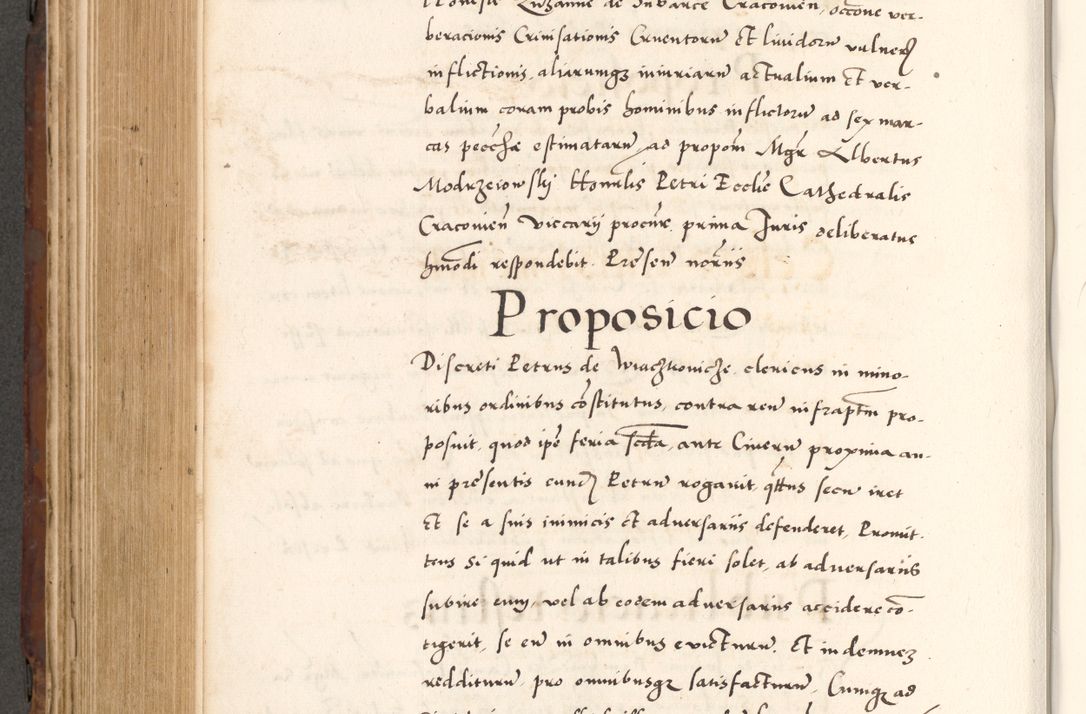 beracionis Crinisationis Cruentorũ Et liuidorũ vulnerꝝ
inflictionis, aliarumqʒ iniuriarũ actualium Et ver-
balium coram probis hominibus inflictorũ ad sex mar-
cas pecc̃hæ estimatarũ, ad propom̃ Mgr̃ Albertus
Modrzeiowskj Honor̃lis Petri Ecclie Cathedralis
Cracovien̄ Viccarij procur̃e prima Juris deliberatus
hmodi respondebit. Presen̄ norijs
Proposicio
Discreti Petrus de Wraczkowicze clericus in mino-
ribus ordinibus cõstitutus, contra reũ infraptm̃ pro-
posuit, quod ipse feria scda, ante Cinerũ proxima an-
ni presentis eundꝫ Petrũ rogauit, qt̃tus secũ iret
Et se a suis inimicis et adversarijs defenderet, Promit-
tens si quid ut in talibus fieri solet, ab adversarijs
subire eum, vel ab eodem adversarijs accidere cõ-
tigerit, se eũ in omnibus evicturũ, Et indemnem
redditurũ, pro omnibusqʒ satisfacturũ, Cumqʒ ad